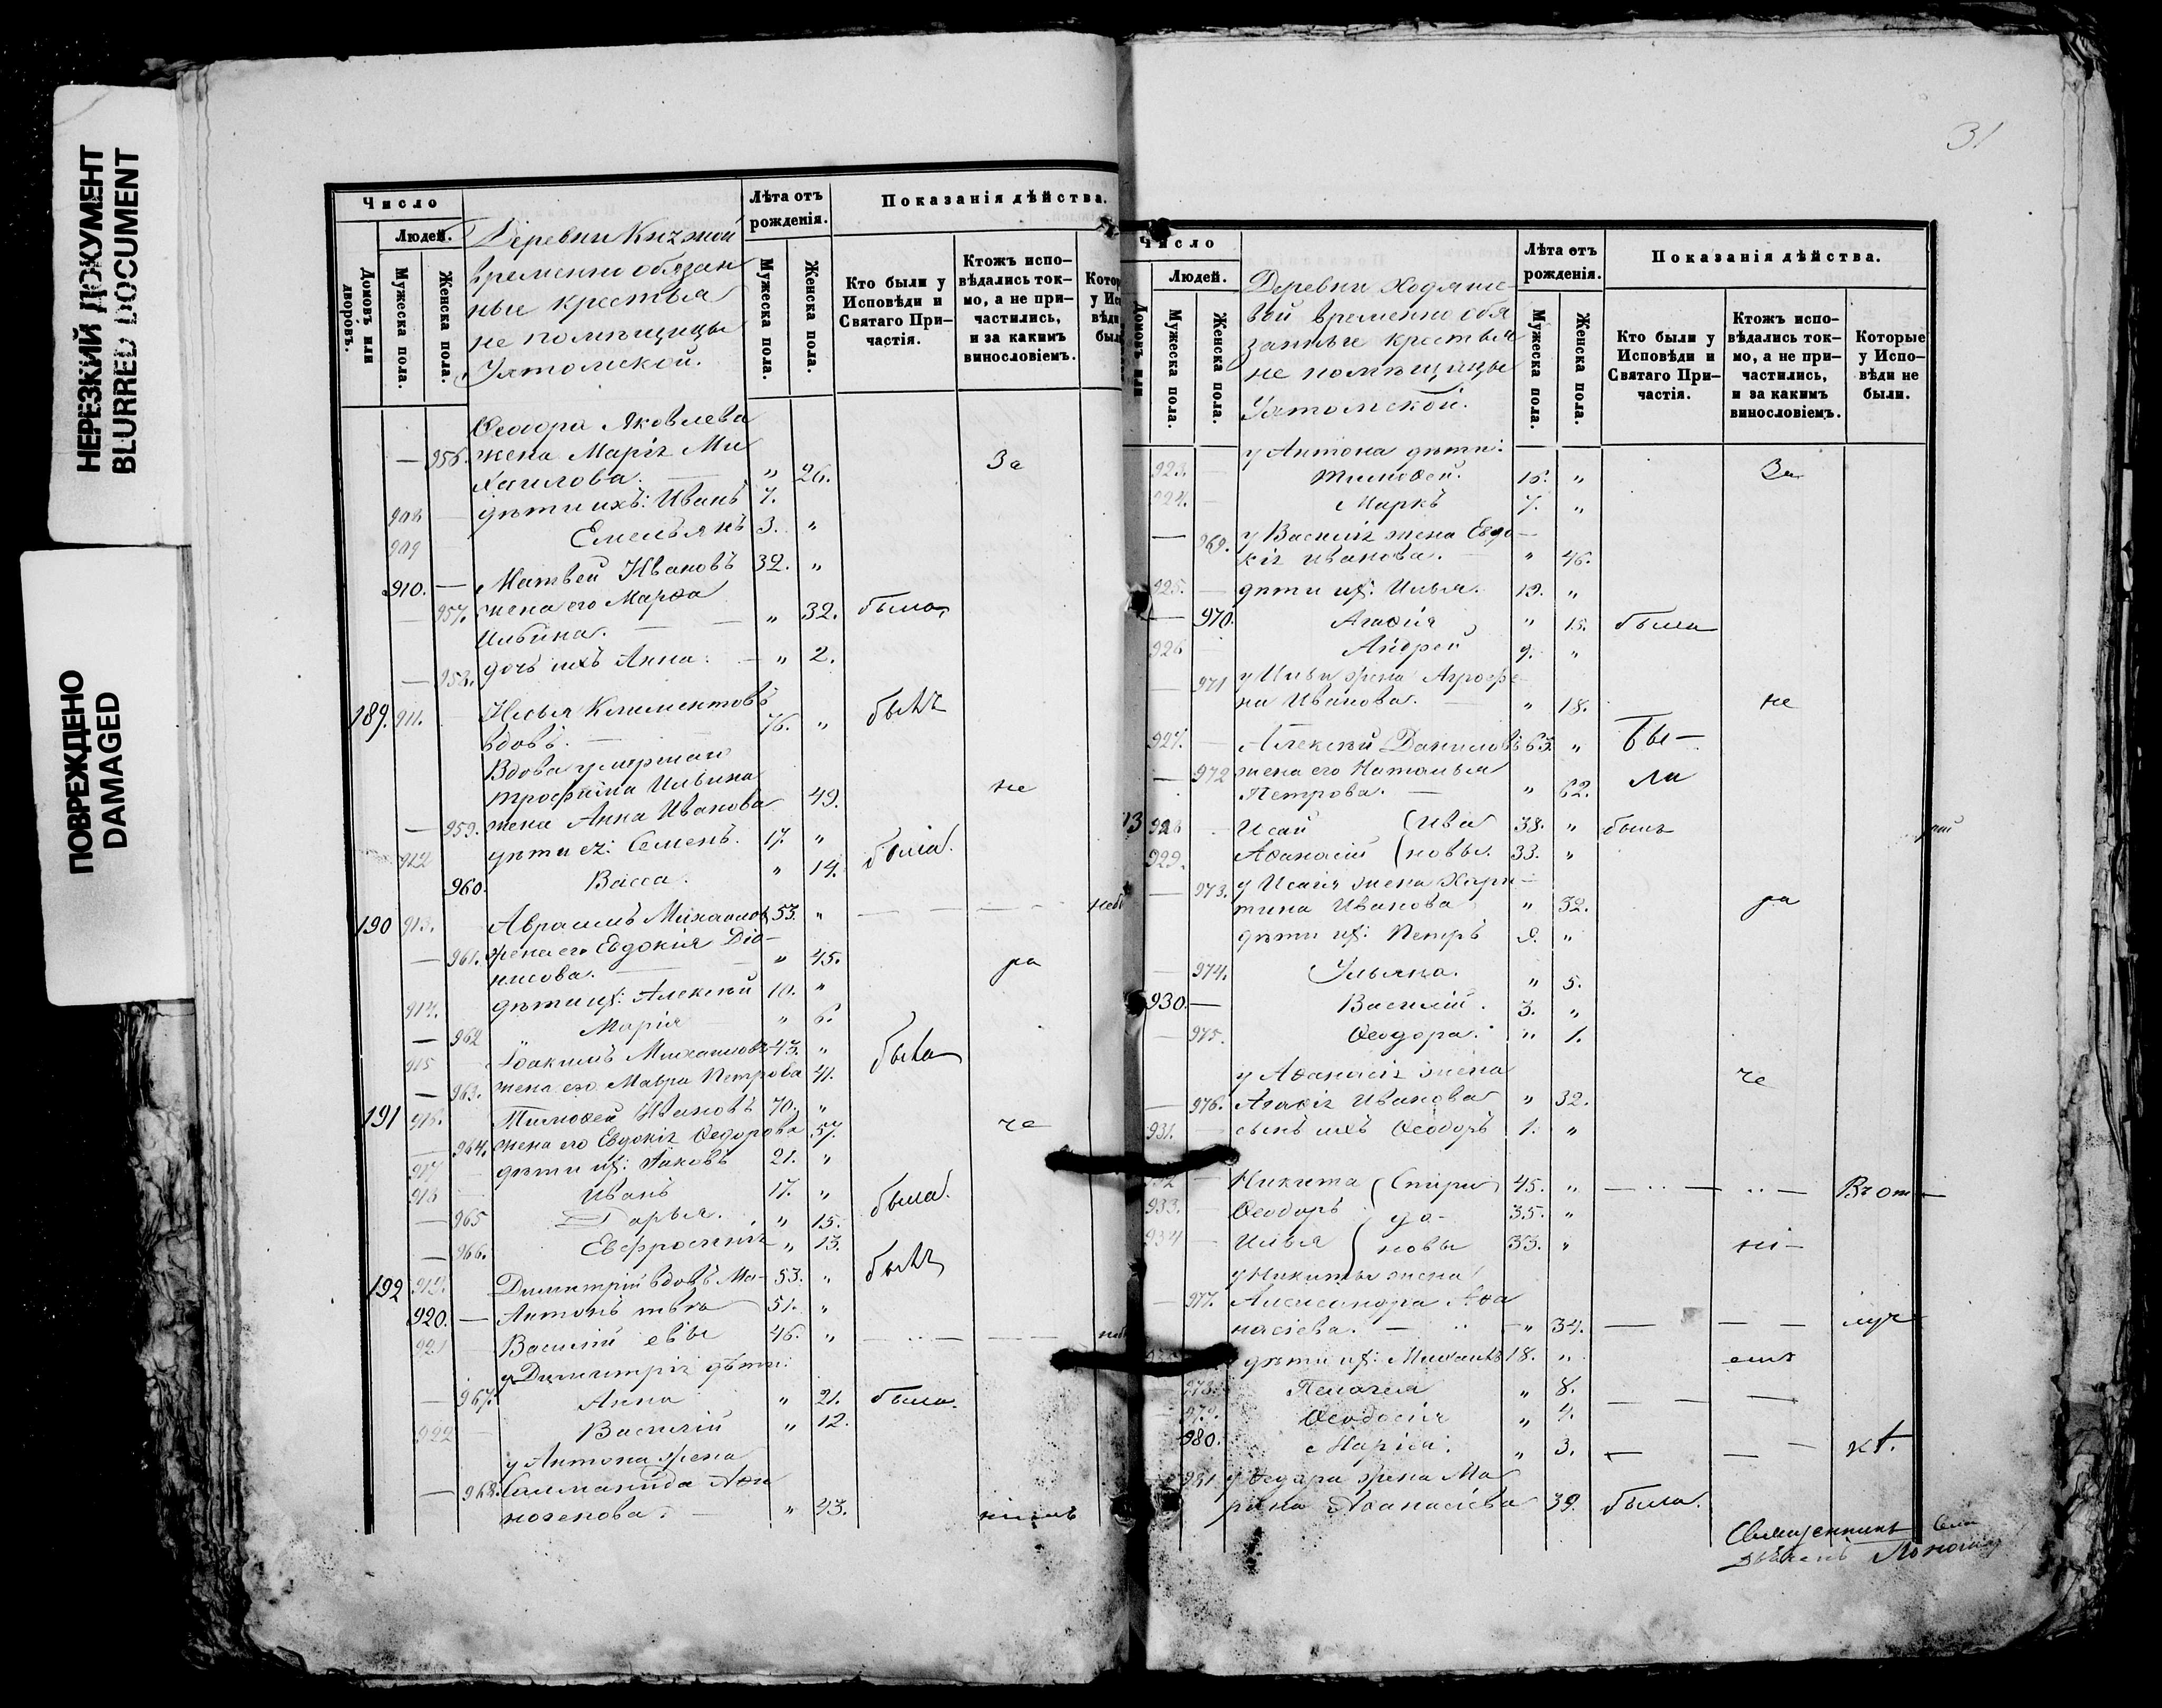 НЕРЕЗКИЙ ДОКУМЕНТ
BLURRED DOCUMENT
ПОВРЕЖДЕНО
DAMAGED
Число
Людей.
Домовъ или дворовъ.
Мужеска пола.
Женска пола.
Деревни
временно обязан
ные крестья
не помѣщицы
Ухтомской.
Лѣта отъ рожденія.
Мужеска пола.
Женска пола.
Показанія дѣйства.
Кто были у Исповѣди и Святаго Причастія.
Ктожъ исповѣдались токмо, а не причастились, и за какимъ винословіемъ.
Ѳеодора Яковлева
— 956. жена Марія Ми
хаилова. — " 26. За
908 дѣти ихъ: Иванъ 7.
909 Емельянъ 3. "
910. — Матвей Ивановъ 32. "
— 957. жена его Марѳа
Ильина. — " 32. была
— 958. дочь ихъ Анна. — " 2.
189. 911. Илья Климентовъ
вдовъ. — 76. " былъ
Вдова умершаго
Трофима Ильина
— 959. жена Анна Иванова 49. не
912 дѣти ея: Семенъ. 17. "
960. Васса. " 14. была.
190 913. Авраамъ Михаиловъ 53. " — — —
— 961. жена его Евдокія Діо-
нисова. — " 45. ра
914. дѣти их: Алексѣй 10. "
— 962 Марія " 6.
915 Іоакимъ Михаиловъ 43. "
— 963. жена его Мавра Петрова 41. была
191 916. Тимоѳей Ивановъ 70. "
— 964. жена его Евдокія Ѳедорова 57. че
917 дѣти их: Іаковъ 21. "
918 Иванъ 17. "
— 965 Дарья. " 15. была.
— 966. Евфросинія " 13.
192 919. Димитрій вдовъ Ма- 53. " былъ
920. — Антонъ твѣ 51. "
921 Василій евы 46. " — — —
у Димитрія дѣти:
— 967. Анна " 21. была.
922 Василій " 12.
у Антона жена
— 968. Соломанида Аѳи
ногенова. — " 43.
31
Число
Людей.
Домовъ или
Мужеска пола.
Женска пола.
Деревни Ходяше
вой временно обя
занные крестья
не помѣщицы
Ухтомской.
Лѣта отъ рожденія.
Мужеска пола.
Женска пола.
Показанія дѣйства.
Кто были у Исповѣди и Святаго Причастія.
Ктожъ исповѣдались токмо, а не причастились, и за какимъ винословіемъ.
Которые у Исповѣди не были.
у Антона дѣти:
923. Тимоѳей. 16. " За
924. Маркъ 7. "
— 969. у Василія жена Евдо-
кія Иванова. — " 46.
925. дѣти их: Илья. 19. "
— 970. Агаѳія " 15. была
926 Андрей 9. "
— 971 у Ильи жена Агрофе-
на Иванова. — " 18. не
927. Алексѣй Даниловъ 63. " Бы-
— 972 жена его Наталья
Петрова. — " 62. ли
928 Исай (Ива 38. " былъ
929. Аѳанасій (новы. 33. "
— 973. у Исаія жена Хари-
тина Иванова " 32. ра
дѣти их: Петръ 9. "
— 974. Ульяна. " 5.
930. — Василій. 3. "
— 975. Ѳеодора. " 1.
у Аѳанасія жена че
— 976. Агаѳія Иванова " 32.
931. сынъ ихъ Ѳеодоръ 1. "
Никита (Спири 45. " Въ от-
933. Ѳеодоръ до- 35. "
934 Илья новы 33. "
у Никиты жена
— 977. Александра Аѳа
насіева. — " 34. — — луч
дѣти их: Михаилъ 18. "
978. Пелагея " 8.
979. Ѳеодосія " 4.
980. Марія. " 3. — — кѣ.
981 у Ѳедора жена Ма
рина Аѳанасіева 39. была.
Священникъ